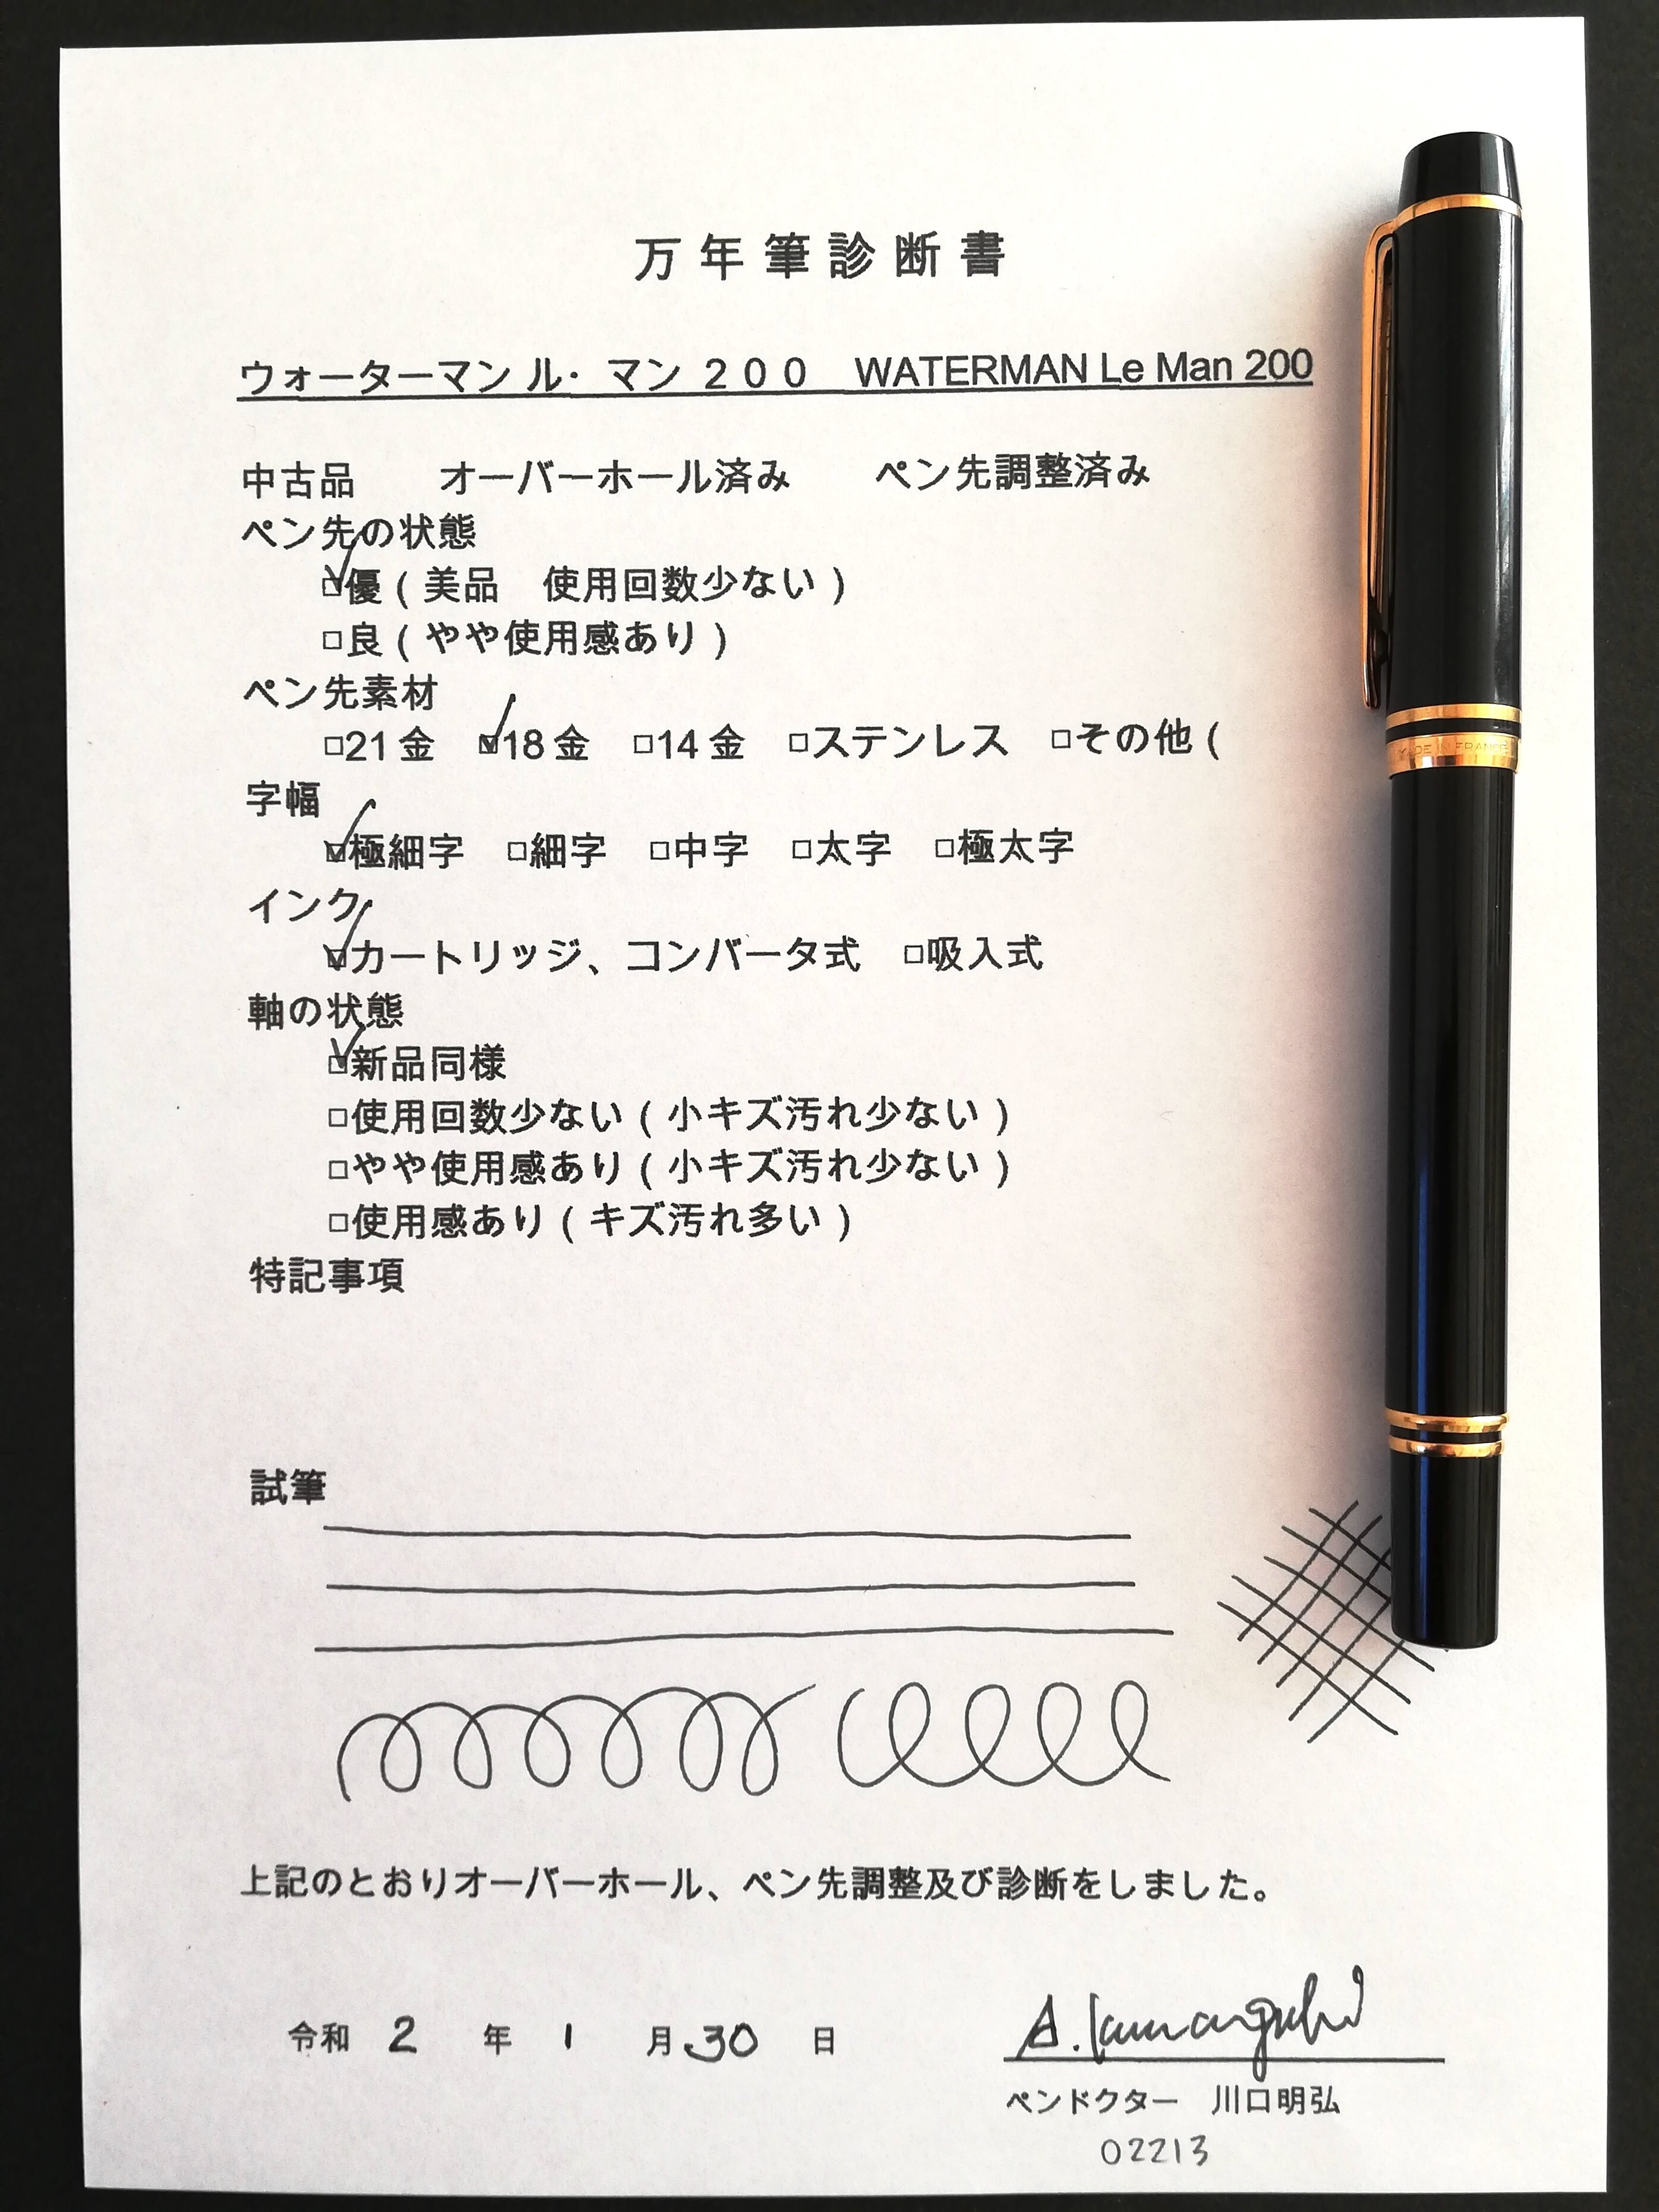 万年筆診断書
ウォーターマン ル・マン 200 WATERMAN Le Man 200
中古品 オーバーホール済み ペン先調整済み
ペン先の状態
☑優(美品 使用回数少ない)
□良(やや使用感あり)
ペン先素材
□21金 ☑18金 □14金 □ステンレス □その他(
字幅
☑極細字 □細字 □中字 □太字 □極太字
インク
☑カートリッジ、コンバータ式 □吸入式
軸の状態
☑新品同様
□使用回数少ない(小キズ汚れ少ない)
□やや使用感あり(小キズ汚れ少ない)
□使用感あり(キズ汚れ多い)
特記事項
試筆
上記のとおりオーバーホール、ペン先調整及び診断をしました。
令和 2 年 1 月 30 日
A. Kawaguchi
ペンドクター 川口明弘
02213
MADE IN FRANCE